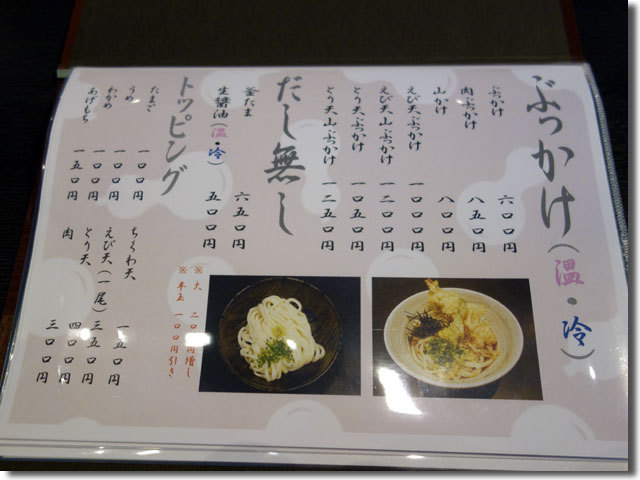 ぶっかけ(温・冷)
ぶっかけ 六〇〇円
肉ぶっかけ 八五〇円
山かけ 八〇〇円
えび天ぶっかけ 一〇〇〇円
えび天山ぶっかけ 一二〇〇円
とり天ぶっかけ 一〇五〇円
とり天山ぶっかけ 一二五〇円
だし無し
釜たま 六五〇円
生醤油(温・冷) 五〇〇円
※大 二〇〇円増し
※半玉 一〇〇円引き
トッピング
たまご 一〇〇円
うめ 一〇〇円
わかめ 一〇〇円
あげもち 一五〇円
ちくわ天 一五〇円
えび天(一尾) 三五〇円
とり天 四〇〇円
肉 三〇〇円